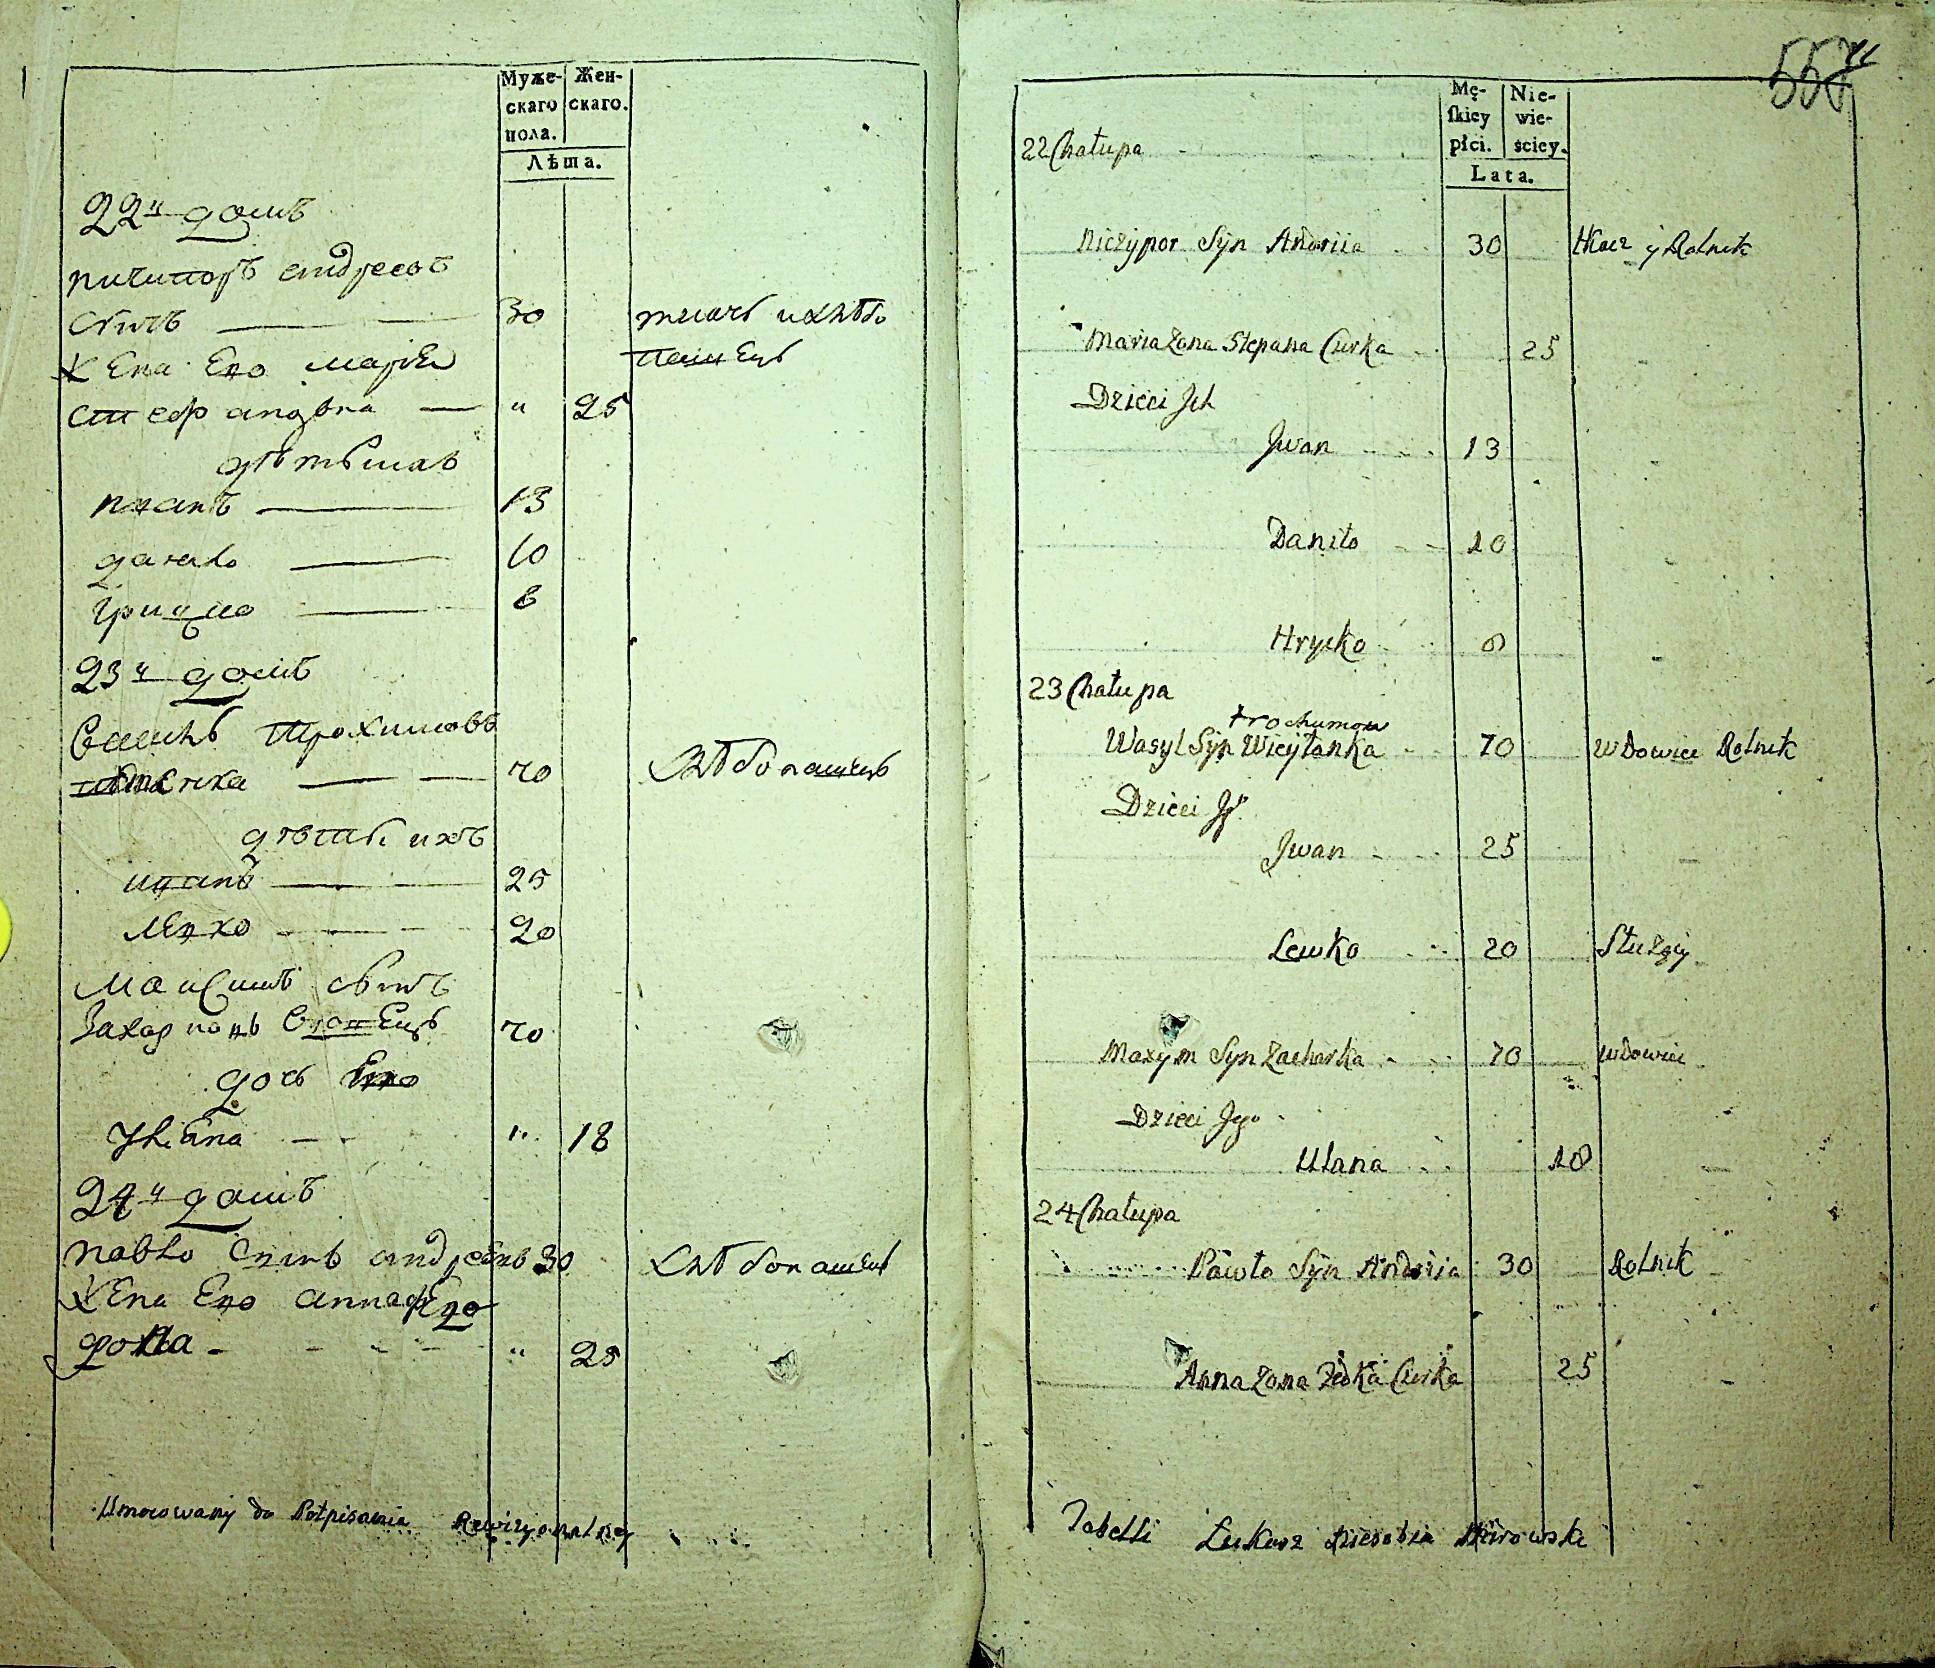 Муже-
скаго
пола.
Жен-
скаго.
Лѣта.
22й домъ
ничипоръ андреевъ
сынъ 30 ткачь и хлѣбо
пашецъ
жена его марія
стефановна " 25
дѣти ихъ
иванъ 13
данило 10
грицко 8
23й домъ
Трохимовъ
70 хлѣбопашецъ
дѣти ихъ
иванъ 25
левко 20
максимъ сынъ
70
дочь его
уліана " 18
24й домъ
павло синъ андреевъ 30 хлѣбопашецъ
жена его анна
" 25
Umocowany do Potpisania Rewizyonalney
Mę-
skiey
płci.
Nie-
wie-
ściey.
Lata.
22 Chałupa
Niczypor Syn Andriia 30 tkacz y Rolnik
Maria Żona Stepana Curka 25
Dzieci Jch
Jwan 13
Daniło 10
Hrycko 8
23 Chałupa
trochumow
Wasyl Syn 70 wdowiec Rolnik
Dzieci Jgo
Jwan 25
Lewko 20 Służący
Maxym Syn Zacharka 70 wdowiec
Dzieci Jego
Ulana 18
24 Chałupa
Pawło Syn Andriia 30 Rolnik
Anna Żona Fedka Curka 25
Tabelli Łukasz